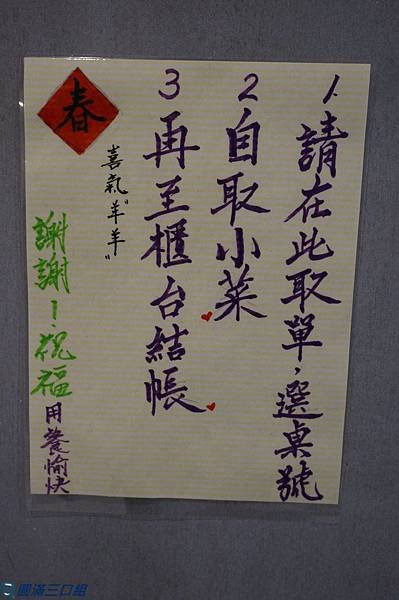 1.請在此取單，選桌號
2自取小菜
3再至櫃台結帳
春
喜氣"羊羊"
謝謝!祝福
用養愉快
圓滿三口組